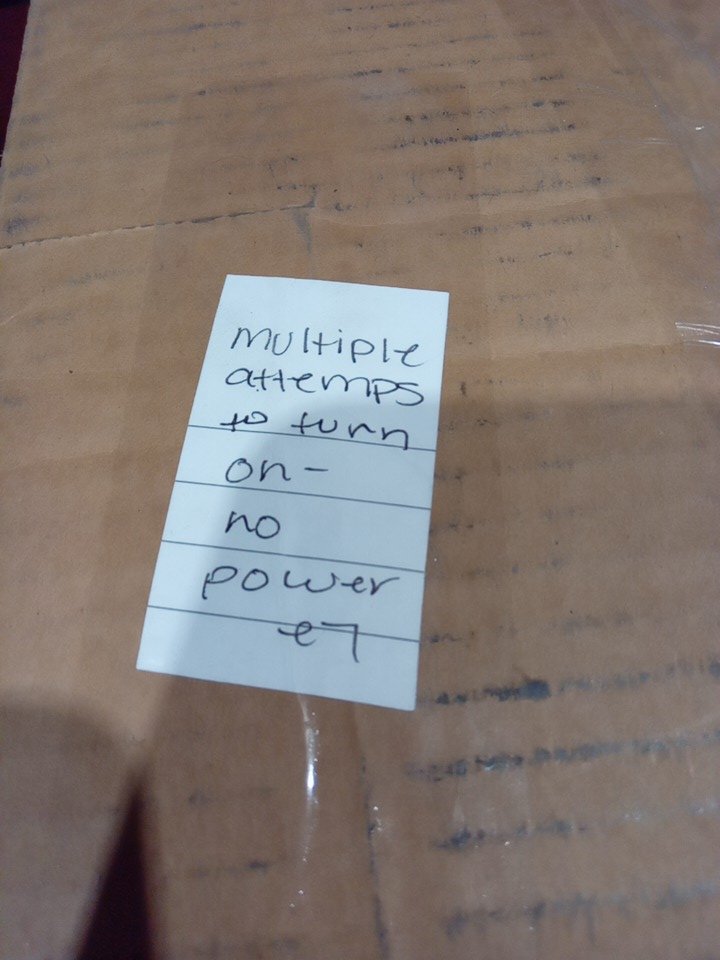 multiple
attemps
to turn
on-
no
power